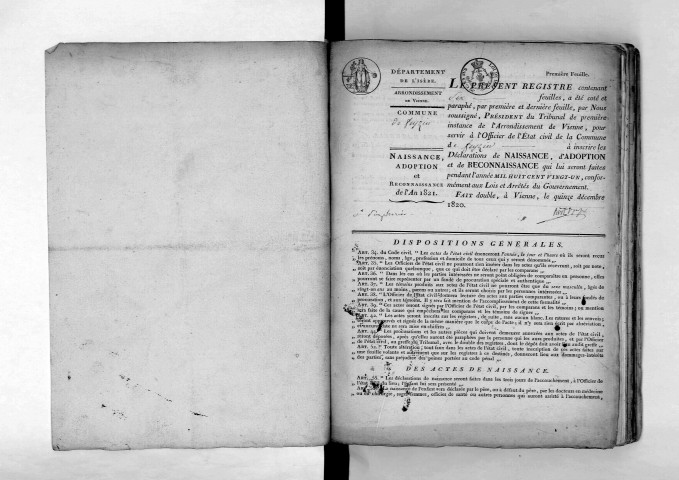 Première Feuille.
DÉPARTEMENT
DE L'ISÈRE.
ARRONDISSEMENT
DE VIENNE.
COMMUNE
NAISSANCE,
ADOPTION
ET
RECONNAISSANCE
de l'An 1821.
LE PRÉSENT REGISTRE contenant
feuilles, a été coté et
paraphé, par première et dernière feuille, par Nous
soussigné, PRÉSIDENT du Tribunal de première
instance de l'Arrondissement de Vienne, pour
servir à l'Officier de l'État civil de la Commune
à inscrire les
Déclarations de NAISSANCE, d'ADOPTION
et de RECONNAISSANCE qui lui seront faites
pendant l'année MIL HUIT CENT VINGT-UN, confor-
mément aux Lois et Arrêtés du Gouvernement.
FAIT double, à Vienne, le quinze décembre
1820.
DISPOSITIONS GÉNÉRALES.
ART. 34. du Code civil. " Les actes de l'état civil énonceront l'année, le jour et l'heure où ils seront reçus
les prénoms, noms, âge, profession et domicile de tous ceux qui y seront dénommés „
ART. 35. " Les Officiers de l'état civil ne pourront rien insérer dans les actes qu'ils recevront, soit par note,
soit par énonciation quelconque, que ce qui doit être déclaré par les comparans „
ART. 36. " Dans les cas où les parties intéressées ne seront point obligées de comparaître en personne, elles
pourront se faire représenter par un fondé de procuration spéciale et authentique „
ART. 37. " Les témoins produits aux actes de l'état civil ne pourront être que du sexe masculin, âgés de
vingt-un ans au moins, parens ou autres; et ils seront choisis par les personnes intéressées „
ART. 38. " L'Officier de l'état civil donnera lecture des actes aux parties comparantes, ou à leurs fondés de
procuration, et aux témoins. Il y sera fait mention de l'accomplissement de cette formalité „
ART. 39. " Ces actes seront signés par l'Officier de l'état civil, par les comparans et les témoins; ou mention
sera faite de la cause qui empêchera les comparans et les témoins de signer „
ART. 42. " Les actes seront inscrits sur les registres, de suite, sans aucun blanc. Les ratures et les renvois
seront approuvés et signés de la même manière que le corps de l'acte; il n'y sera rien écrit par abréviation,
et aucune date ne sera mise en chiffres „
ART. 44. " Les procurations et les autres pièces qui doivent demeurer annexées aux actes de l'état civil,
seront déposées, après qu'elles auront été paraphées par la personne qui les aura produites, et par l'Officier
de l'état civil, au greffe du Tribunal, avec le double des registres, dont le dépôt doit avoir lieu audit greffe „
feuille volante et autrement que sur les registres à ce destinés, donneront lieu aux dommages-intérêts
des parties, sans préjudice des peines portées au code pénal „
DES ACTES DE NAISSANCE.
ART. 55. " Les déclarations de naissance seront faites dans les trois jours de l'accouchement, à l'Officier de
l'état civil du lieu; l'enfant lui sera présenté „
La naissance de l'enfant sera déclarée par le père, ou à défaut du père, par les docteurs en médecine
ou en chirurgie, sages-femmes, officiers de santé ou autres personnes qui auront assisté à l'accouchement,